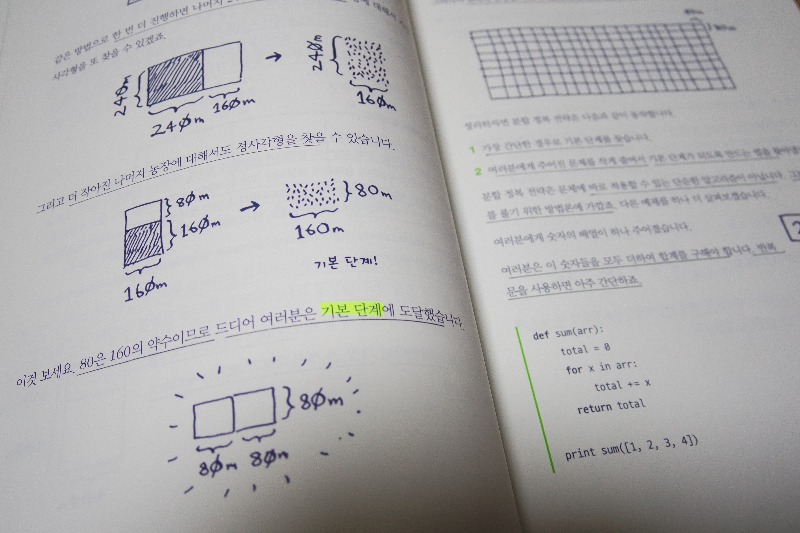 같은 방법으로 한 번 더 진행하면 나머지
사각형을 또 찾을 수 있겠죠.
240m
240m 160m
240m
160m
그리고 더 작아진 나머지 농장에 대해서도 정사각형을 찾을 수 있습니다.
80m
160m
160m
80m
160m
기본 단계!
이것 보세요. 80은 160의 약수이므로 드디어 여러분은 기본 단계에 도달했습니다.
80m
80m 80m
정리하자면 분할 정복 전략은 다음과 같이 동작합니다.
1 가장 간단한 경우로 기본 단계를 찾습니다.
2 여러분에게 주어진 문제를 작게 줄여서 기본 단계가 되도록 만드는 법을
분할 정복 전략은 문제에 바로 적용할 수 있는 단순한 알고리즘이 아닙니다.
를 풀기 위한 방법론에 가깝죠. 다른 예제를 하나 더 살펴보겠습니다.
여러분에게 숫자의 배열이 하나 주어졌습니다.
여러분은 이 숫자들을 모두 더하여 합계를 구해야 합니다. 반복
문을 사용하면 아주 간단하죠.
def sum(arr):
total = 0
for x in arr:
total += x
return total
print sum([1, 2, 3, 4])